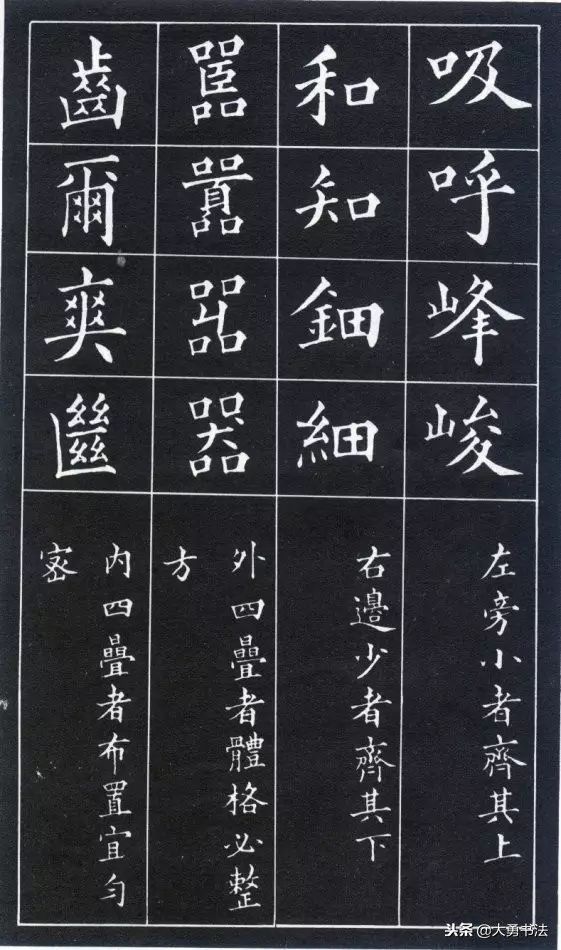 吸呼峰峻
左旁小者齊其上
和知鈿細
右邊少者齊其下
嚚囂嘂器
外四疊者體格必整
方
齒爾爽
內四疊者布置宜勻
密
头条 @大勇书法